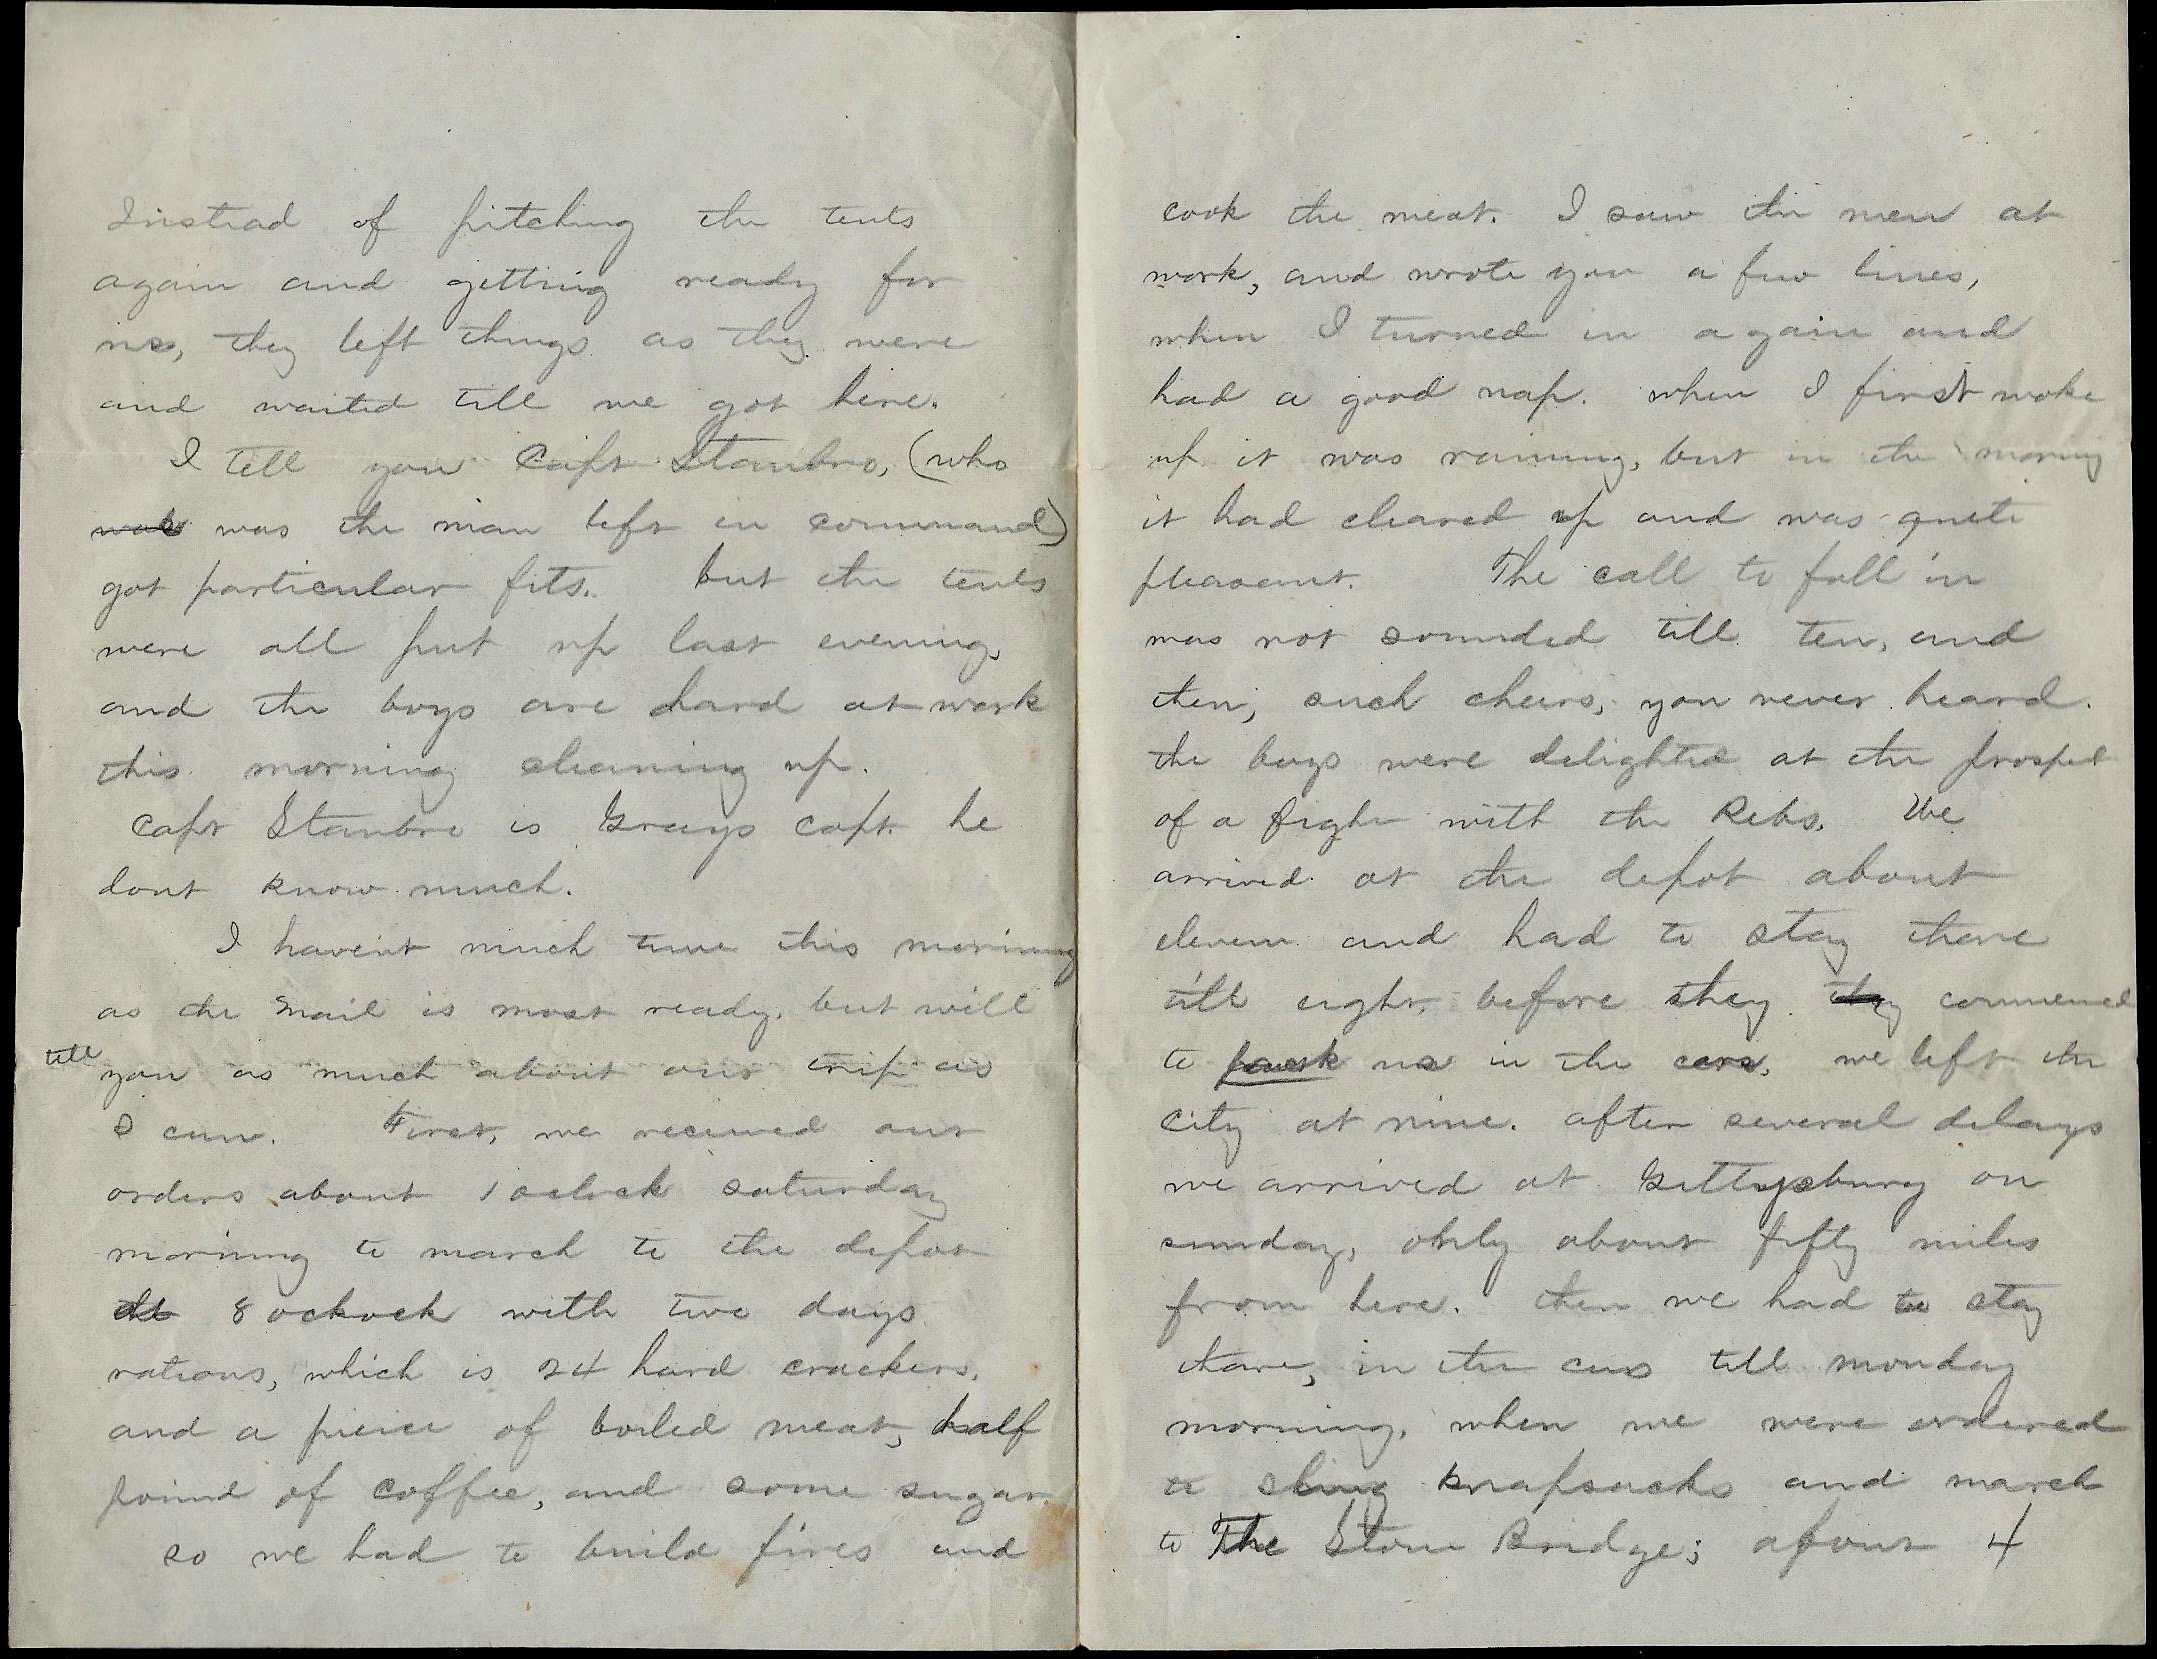 Instead of pitching the tents
again and getting ready for
us, they left things as they were
and waited till we got here.
I tell you Capt Stanbro, (who
was was the man left in command)
got particular fits. but the tents
were all put up last evening,
and the boys are hard at work
this morning cleaning up.
Capt Stanbro is Grays capt. he
dont know much.
I havent much time this morning
as the mail is most ready, but will
tell you as much about our trip as
I can. First, we received our
orders about 1 oclock saturday
morning to march to the depot
at 8 ockock with two days
rations, which is 24 hard crackers,
and a pieice of boiled meat, half
pound of coffee, and some sugar
so we had to build fires and
cook the meat. I saw the men at
work, and wrote you a few lines,
when I turned in again and
had a good nap. when I first woke
up it was raining, but in the morning
it had cleared up and was quite
pleasant. The call to fall in
was not sounded till ten, and
then, such cheers, you never heard.
the boys were delighted at the prospect
of a fight with the Rebs. We
arrived at the depot about
eleven and had to stay there
till eight, before they they commenced
to pack us in the cars. we left the
city at nine. after several delays
we arrived at Gettysburg on
sunday, only about fifty miles
from here. then we had to stay
there, in the cars till monday
morning, when we were ordered
to sling knapsacks and march
to The Stone Bridge; about 4